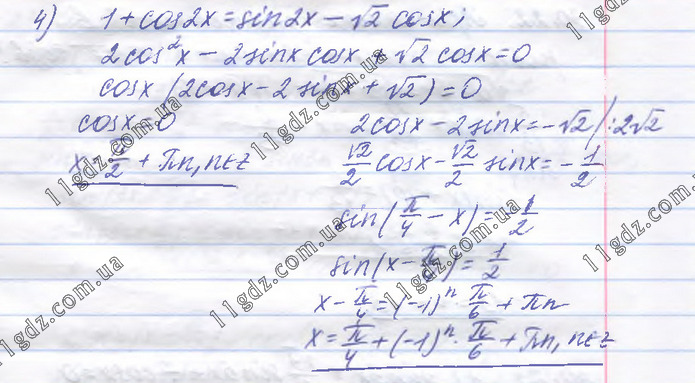 4) 1 + cos2x = sin2x − √2 cosx;
2cos²x − 2sinx cosx + √2 cosx = 0
cosx (2cosx − 2sinx + √2) = 0
cosx = 0
x = π/2 + πn, n∈z
2cosx − 2sinx = −√2 /:2√2
√2/2 cosx − √2/2 sinx = − 1/2
sin(π/4 − x) = − 1/2
sin(x − π/4) = 1/2
x − π/4 = (−1)ⁿ π/6 + πn
x = π/4 + (−1)ⁿ · π/6 + πn, n∈z
11gdz.com.ua
11gdz.com.ua
11gdz.com.ua
11gdz.com.ua
11gdz.com.ua
11gdz.com.ua
11gdz.com.ua
11gdz.com.ua